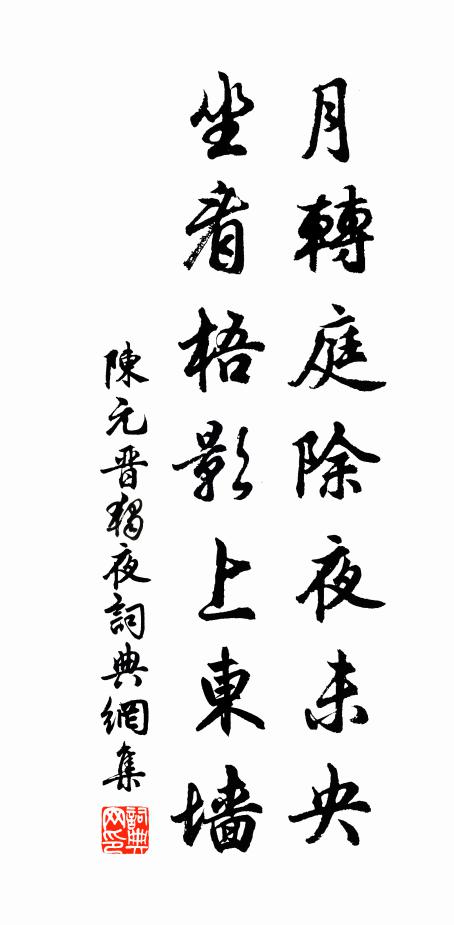 月轉庭除夜未央
坐看梧影上東墻
陳元晋獨夜詞典網集
詞典網印